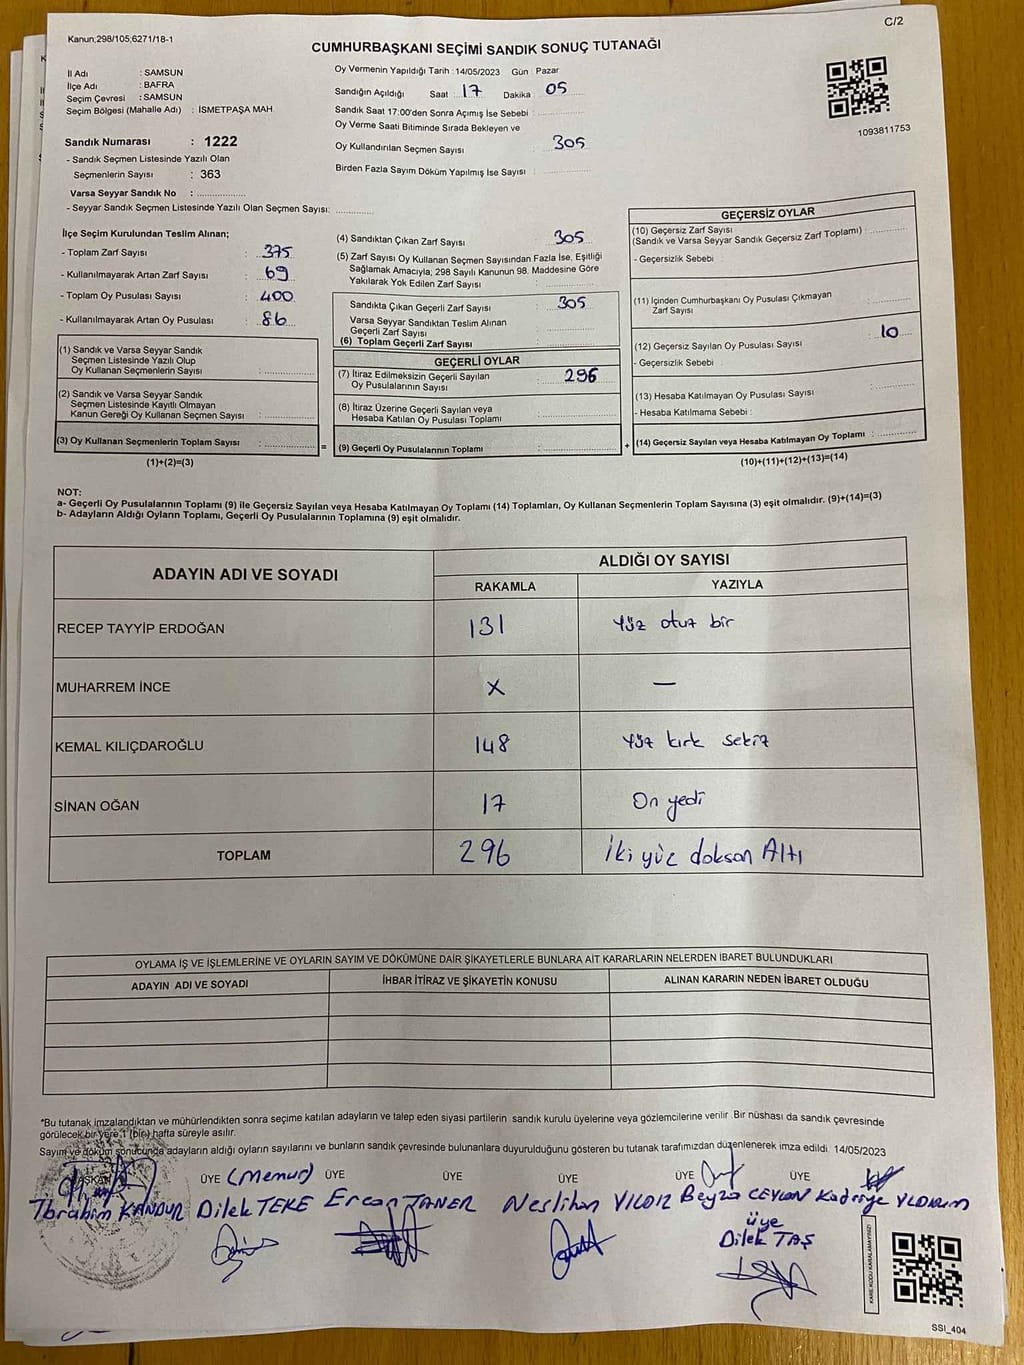 C/2
Kanun;298/105;6271/18-1
CUMHURBAŞKANI SEÇİMİ SANDIK SONUÇ TUTANAĞI
İl Adı : SAMSUN
İlçe Adı : BAFRA
Seçim Çevresi : SAMSUN
Seçim Bölgesi (Mahalle Adı) : İSMETPAŞA MAH.
Oy Vermenin Yapıldığı Tarih :14/05/2023 Gün : Pazar
Sandığın Açıldığı Saat : 17 Dakika : 05
Sandık Saat 17:00'den Sonra Açılmış İse Sebebi :
Oy Verme Saati Bitiminde Sırada Bekleyen ve
Oy Kullandırılan Seçmen Sayısı : 305
Birden Fazla Sayım Döküm Yapılmış İse Sayısı :
1093811753
Sandık Numarası : 1222
- Sandık Seçmen Listesinde Yazılı Olan
Seçmenlerin Sayısı : 363
Varsa Seyyar Sandık No :
- Seyyar Sandık Seçmen Listesinde Yazılı Olan Seçmen Sayısı:
İlçe Seçim Kurulundan Teslim Alınan;
- Toplam Zarf Sayısı : 375
- Kullanılmayarak Artan Zarf Sayısı : 69
- Toplam Oy Pusulası Sayısı : 400
- Kullanılmayarak Artan Oy Pusulası : 86
(1) Sandık ve Varsa Seyyar Sandık
Seçmen Listesinde Yazılı Olup
Oy Kullanan Seçmenlerin Sayısı :
(2) Sandık ve Varsa Seyyar Sandık
Seçmen Listesinde Kayıtlı Olmayan
Kanun Gereği Oy Kullanan Seçmen Sayısı :
(3) Oy Kullanan Seçmenlerin Toplam Sayısı :
(1)+(2)=(3)
(4) Sandıktan Çıkan Zarf Sayısı : 305
(5) Zarf Sayısı Oy Kullanan Seçmen Sayısından Fazla İse, Eşitliği
Sağlamak Amacıyla; 298 Sayılı Kanunun 98. Maddesine Göre
Yakılarak Yok Edilen Zarf Sayısı :
Sandıkta Çıkan Geçerli Zarf Sayısı : 305
Varsa Seyyar Sandıktan Teslim Alınan
Geçerli Zarf Sayısı :
(6) Toplam Geçerli Zarf Sayısı :
GEÇERLİ OYLAR
(7) İtiraz Edilmeksizin Geçerli Sayılan
Oy Pusulalarının Sayısı : 296
(8) İtiraz Üzerine Geçerli Sayılan veya
Hesaba Katılan Oy Pusulası Toplamı :
= (9) Geçerli Oy Pusulalarının Toplamı :
GEÇERSİZ OYLAR
(10) Geçersiz Zarf Sayısı
(Sandık ve Varsa Seyyar Sandık Geçersiz Zarf Toplamı) :
- Geçersizlik Sebebi :
(11) İçinden Cumhurbaşkanı Oy Pusulası Çıkmayan
Zarf Sayısı :
(12) Geçersiz Sayılan Oy Pusulası Sayısı : 10
- Geçersizlik Sebebi :
(13) Hesaba Katılmayan Oy Pusulası Sayısı :
- Hesaba Katılmama Sebebi :
+ (14) Geçersiz Sayılan veya Hesaba Katılmayan Oy Toplamı :
(10)+(11)+(12)+(13)=(14)
NOT:
a- Geçerli Oy Pusulalarının Toplamı (9) ile Geçersiz Sayılan veya Hesaba Katılmayan Oy Toplamı (14) Toplamları, Oy Kullanan Seçmenlerin Toplam Sayısına (3) eşit olmalıdır. (9)+(14)=(3)
b- Adayların Aldığı Oyların Toplamı, Geçerli Oy Pusulalarının Toplamına (9) eşit olmalıdır.
ADAYIN ADI VE SOYADI ALDIĞI OY SAYISI
RAKAMLA YAZIYLA
RECEP TAYYİP ERDOĞAN 131 Yüz otuz bir
MUHARREM İNCE X —
KEMAL KILIÇDAROĞLU 148 Yüz kırk sekiz
SİNAN OĞAN 17 On yedi
TOPLAM 296 İki yüz doksan Altı
OYLAMA İŞ VE İŞLEMLERİNE VE OYLARIN SAYIM VE DÖKÜMÜNE DAİR ŞİKAYETLERLE BUNLARA AİT KARARLARIN NELERDEN İBARET BULUNDUKLARI
ADAYIN ADI VE SOYADI İHBAR İTİRAZ VE ŞİKAYETİN KONUSU ALINAN KARARIN NEDEN İBARET OLDUĞU
*Bu tutanak imzalandıktan ve mühürlendikten sonra seçime katılan adayların ve talep eden siyasi partilerin sandık kurulu üyelerine veya gözlemcilerine verilir. Bir nüshası da sandık çevresinde
görülecek bir yere 1 (bir) hafta süreyle asılır.
Sayım ve döküm sonucunda adayların aldığı oyların sayılarını ve bunların sandık çevresinde bulunanlara duyurulduğunu gösteren bu tutanak tarafımızdan düzenlenerek imza edildi. 14/05/2023
BAŞKAN ÜYE (Memur) ÜYE ÜYE ÜYE ÜYE ÜYE
İbrahim KANDUR Dilek TEKE Ercan TANER Neslihan YILDIZ Beyza CEYLAN Kadriye YILDIRIM
üye
Dilek TAŞ
KARE KODU KARALAMAYINIZ!
SSI_404